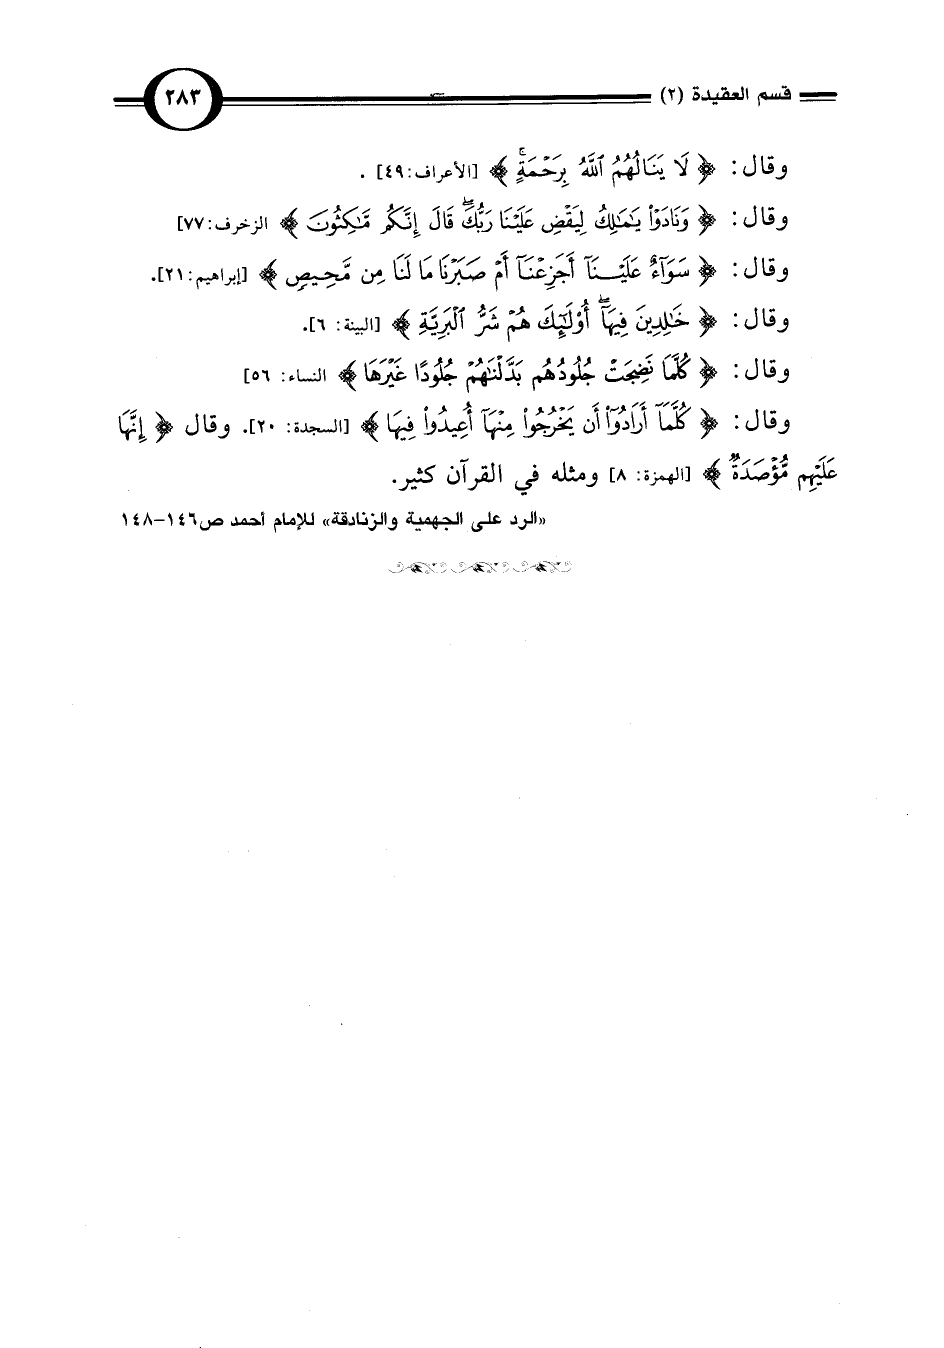 قسم العقيدة (٢) ٢٨٣
وقال: ﴿ لَا يَنَالُهُمُ ٱللَّهُ بِرَحْمَةٍ ۚ ﴾ [الأعراف: ٤٩] .
وقال: ﴿ وَنَادَوْاْ يَٰمَٰلِكُ لِيَقْضِ عَلَيْنَا رَبُّكَ ۖ قَالَ إِنَّكُم مَّٰكِثُونَ ﴾ الزخرف: ٧٧]
وقال: ﴿ سَوَآءٌ عَلَيْنَآ أَجَزِعْنَآ أَمْ صَبَرْنَا مَا لَنَا مِن مَّحِيصٍ ﴾ [إبراهيم: ٢١].
وقال: ﴿ خَٰلِدِينَ فِيهَآ ۖ أُوْلَٰٓئِكَ هُمْ شَرُّ ٱلْبَرِيَّةِ ﴾ [البينة: ٦].
وقال: ﴿ كُلَّمَا نَضِجَتْ جُلُودُهُم بَدَّلْنَٰهُمْ جُلُودًا غَيْرَهَا ﴾ النساء: ٥٦]
وقال: ﴿ كُلَّمَآ أَرَادُوٓاْ أَن يَخْرُجُواْ مِنْهَآ أُعِيدُواْ فِيهَا ﴾ [السجدة: ٢٠]. وقال ﴿ إِنَّهَا
عَلَيْهِم مُّؤْصَدَةٌ ﴾ [الهمزة: ٨] ومثله في القرآن كثير.
«الرد على الجهمية والزنادقة» للإمام أحمد ص١٤٦-١٤٨